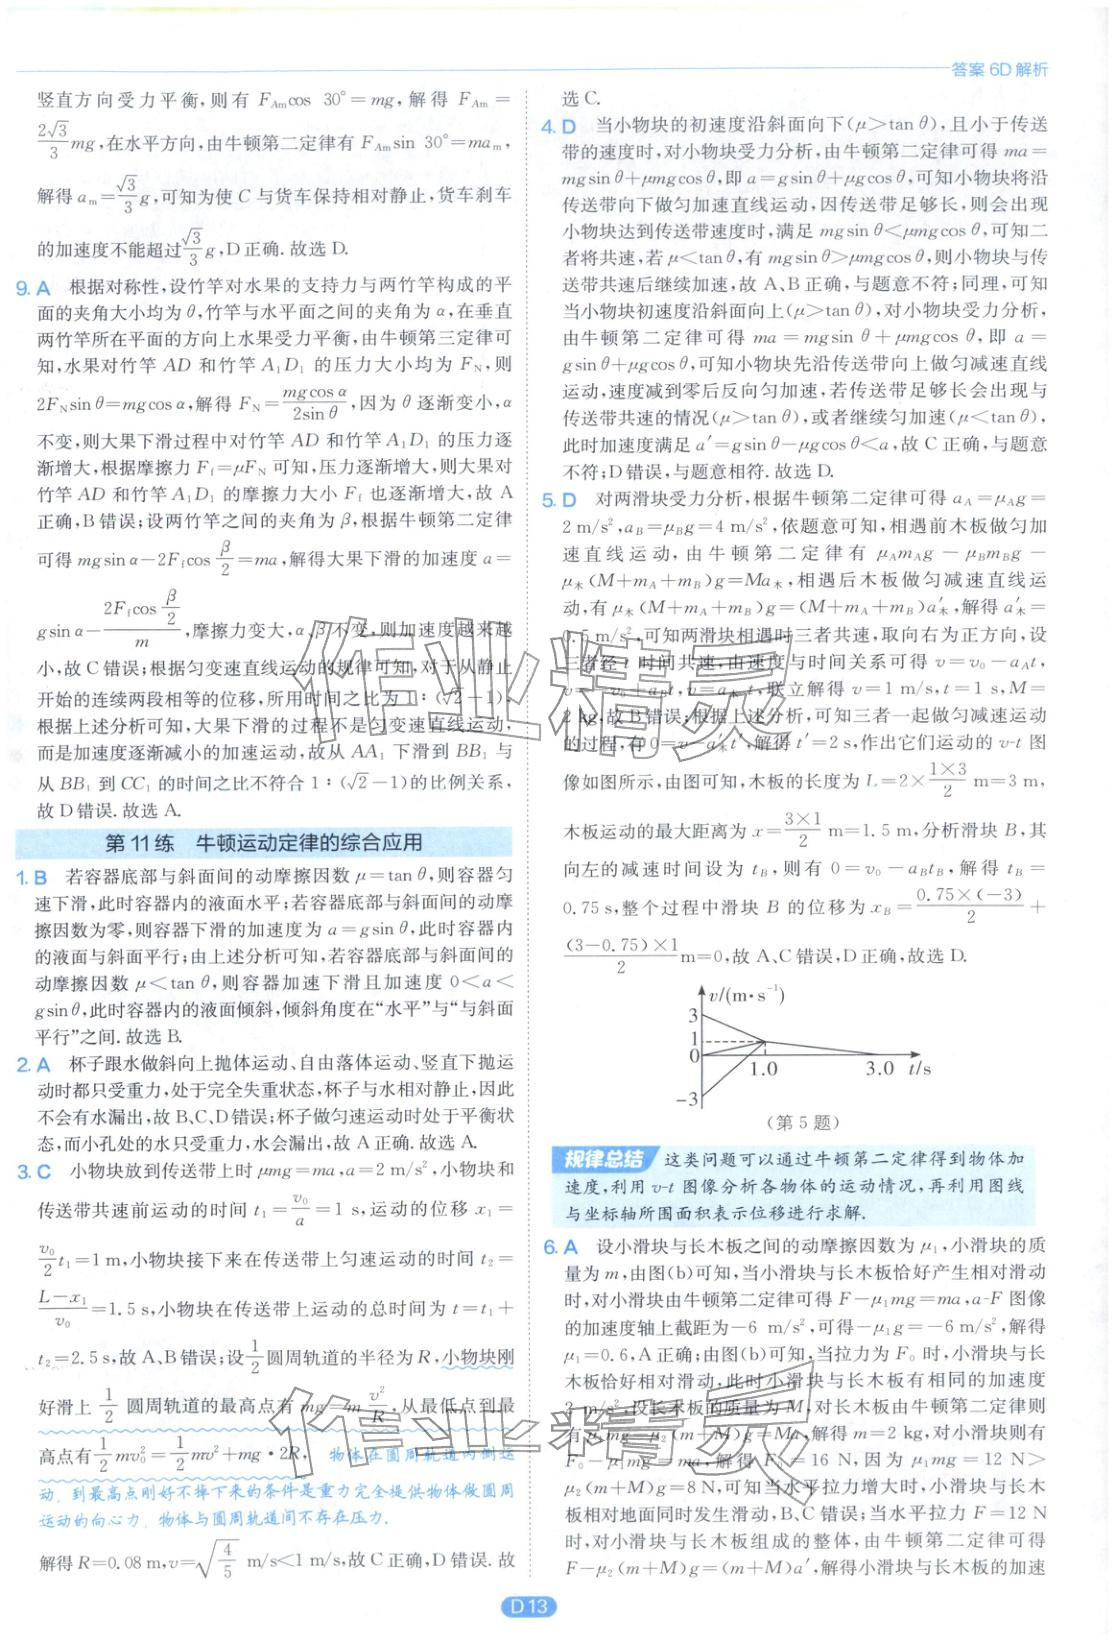 答案 6D 解析
竖直方向受力平衡,则有 F_Am cos 30°=mg,解得 F_Am=
2√3/3 mg,在水平方向,由牛顿第二定律有 F_Am sin 30°=ma_m,
解得 a_m=√3/3 g,可知为使 C 与货车保持相对静止,货车刹车
的加速度不能超过√3/3 g,D 正确. 故选 D.
9. A 根据对称性,设竹竿对水果的支持力与两竹竿构成的平
面的夹角大小均为 θ,竹竿与水平面之间的夹角为 α,在垂直
两竹竿所在平面的方向上水果受力平衡,由牛顿第三定律可
知,水果对竹竿 AD 和竹竿 A₁D₁ 的压力大小均为 F_N,则
2F_N sin θ=mgcos α,解得 F_N=mgcos α/2sin θ,因为 θ 逐渐变小,α
不变,则大果下滑过程中对竹竿 AD 和竹竿 A₁D₁ 的压力逐
渐增大,根据摩擦力 F_f=μF_N 可知,压力逐渐增大,则大果对
竹竿 AD 和竹竿 A₁D₁ 的摩擦力大小 F_f 也逐渐增大,故 A
正确,B 错误;设两竹竿之间的夹角为 β,根据牛顿第二定律
可得 mgsin α－2F_f cos β/2=ma,解得大果下滑的加速度 a=
gsin α－(2F_f cos β/2)/m,摩擦力变大,α、β 不变,则加速度越来越
小,故 C 错误;根据匀变速直线运动的规律可知,对于从静止
开始的连续两段相等的位移,所用时间之比为 1∶(√2－1),
根据上述分析可知,大果下滑的过程不是匀变速直线运动,
而是加速度逐渐减小的加速运动,故从 AA₁ 下滑到 BB₁ 与
从 BB₁ 到 CC₁ 的时间之比不符合 1∶(√2－1)的比例关系,
故 D 错误. 故选 A.
第 11 练 牛顿运动定律的综合应用
1. B 若容器底部与斜面间的动摩擦因数 μ=tan θ,则容器匀
速下滑,此时容器内的液面水平;若容器底部与斜面间的动摩
擦因数为零,则容器下滑的加速度为 a=gsin θ,此时容器内
的液面与斜面平行;由上述分析可知,若容器底部与斜面间的
动摩擦因数 μ<tan θ,则容器加速下滑且加速度 0<a<
gsin θ,此时容器内的液面倾斜,倾斜角度在“水平”与“与斜面
平行”之间. 故选 B.
2. A 杯子跟水做斜向上抛体运动、自由落体运动、竖直下抛运
动时都只受重力,处于完全失重状态,杯子与水相对静止,因此
不会有水漏出,故 B、C、D 错误;杯子做匀速运动时处于平衡状
态,而小孔处的水只受重力,水会漏出,故 A 正确. 故选 A.
3. C 小物块放到传送带上时 μmg=ma,a=2 m/s²,小物块和
传送带共速前运动的时间 t₁=v₀/a=1 s,运动的位移 x₁=
v₀/2 t₁=1 m,小物块接下来在传送带上匀速运动的时间 t₂=
(L－x₁)/v₀=1.5 s,小物块在传送带上运动的总时间为 t=t₁+
t₂=2.5 s,故 A、B 错误;设1/2圆周轨道的半径为 R,小物块刚
好滑上 1/2 圆周轨道的最高点有 mg=m v²/R,从最低点到最
高点有1/2 mv₀²=1/2 mv²+mg·2R, 物体在圆周轨道内侧运
动,到最高点刚好不掉下来的条件是重力完全提供物体做圆周
运动的向心力,物体与圆周轨道间不存在压力.
解得 R=0.08 m,v=√(4/5) m/s<1 m/s,故 C 正确,D 错误. 故
选 C.
4. D 当小物块的初速度沿斜面向下(μ>tan θ),且小于传送
带的速度时,对小物块受力分析,由牛顿第二定律可得 ma=
mgsin θ+μmgcos θ,即 a=gsin θ+μgcos θ,可知小物块将沿
传送带向下做匀加速直线运动,因传送带足够长,则会出现
小物块达到传送带速度时,满足 mgsin θ<μmgcos θ,可知二
者将共速,若 μ<tan θ,有 mgsin θ>μmgcos θ,则小物块与传
送带共速后继续加速,故 A、B 正确,与题意不符;同理,可知
当小物块初速度沿斜面向上(μ>tan θ),对小物块受力分析,
由牛顿第二定律可得 ma=mgsin θ+μmgcos θ,即 a=
gsin θ+μgcos θ,可知小物块先沿传送带向上做匀减速直线
运动,速度减到零后反向匀加速,若传送带足够长会出现与
传送带共速的情况(μ>tan θ),或者继续匀加速(μ<tan θ),
此时加速度满足 a′=gsin θ－μgcos θ<a,故 C 正确,与题意
不符;D 错误,与题意相符. 故选 D.
5. D 对两滑块受力分析,根据牛顿第二定律可得 a_A=μ_A g=
2 m/s²,a_B=μ_B g=4 m/s²,依题意可知,相遇前木板做匀加
速直线运动,由牛顿第二定律有 μ_A m_A g－μ_B m_B g－
μ_木(M+m_A+m_B)g=Ma_木,相遇后木板做匀减速直线运
动,有 μ_木(M+m_A+m_B)g=(M+m_A+m_B)a′_木,解得 a′_木=
0.5 m/s²,可知两滑块相遇时三者共速,取向右为正方向,设
三者经 t 时间共速,由速度与时间关系可得 v=v₀－a_A t,
v=－v₀+a_B t,v=a_木 t,联立解得 v=1 m/s,t=1 s,M=
2 kg,故 B 错误;根据上述分析,可知三者一起做匀减速运动
的过程,有 0=v－a′_木 t′,解得 t′=2 s,作出它们运动的 v-t 图
像如图所示,由图可知,木板的长度为 L=2×(1×3)/2 m=3 m,
木板运动的最大距离为 x=(3×1)/2 m=1.5 m,分析滑块 B,其
向左的减速时间设为 t_B,则有 0=v₀－a_B t_B,解得 t_B=
0.75 s,整个过程中滑块 B 的位移为 x_B=(0.75×(－3))/2+
((3－0.75)×1)/2 m=0,故 A、C 错误,D 正确,故选 D.
v/(m·s⁻¹)
3
1
0
－3
1.0
3.0
t/s
(第 5 题)
规律总结 这类问题可以通过牛顿第二定律得到物体加
速度,利用 v-t 图像分析各物体的运动情况,再利用图线
与坐标轴所围面积表示位移进行求解.
6. A 设小滑块与长木板之间的动摩擦因数为 μ₁,小滑块的质
量为 m,由图(b)可知,当小滑块与长木板恰好产生相对滑动
时,对小滑块由牛顿第二定律可得 F－μ₁mg=ma,a-F 图像
的加速度轴上截距为－6 m/s²,可得－μ₁g=－6 m/s²,解得
μ₁=0.6,A 正确;由图(b)可知,当拉力为 F₀ 时,小滑块与长
木板恰好相对滑动,此时小滑块与长木板有相同的加速度
2 m/s²,设长木板的质量为 M,对长木板由牛顿第二定律则
有 μ₁mg－μ₂(m+M)g=Ma,解得 m=2 kg,对小滑块则有
F₀－μ₁mg=ma,解得 F₀=16 N,因为 μ₁mg=12 N>
μ₂(m+M)g=8 N,可知当水平拉力增大时,小滑块与长木
板相对地面同时发生滑动,B、C 错误;当水平拉力 F=12 N
时,对小滑块与长木板组成的整体,由牛顿第二定律可得
F－μ₂(m+M)g=(m+M)a′,解得小滑块与长木板的加速
作业精灵
作业精灵
D 13